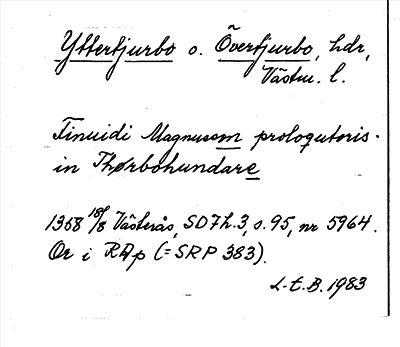 Yttertjurbo o. Övertjurbo, hdr,
Västm. l.
Finuidi Magnusson prolocutoris
in Thørbohundare
1368 18/8 Västerås, SD 7 h. 3, s. 95, nr 5964.
Or i RAp (= SRP 383).
L-E.B. 1983